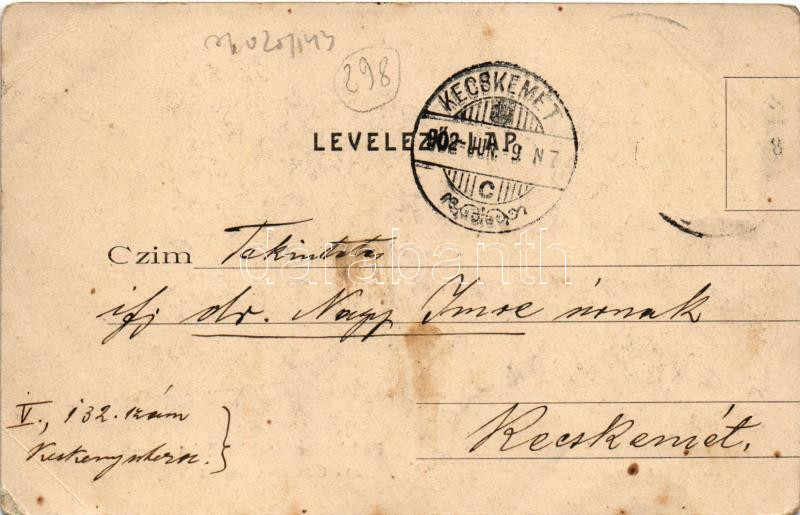 298
KECSKEMÉT
LEVELEZŐ-LAP.
902 JUN. 9 N 7
C
Czim Tekintetes
ifj dr. Nagy Imre úrnak
V., 132. szám
Kecskemét.
darabanth